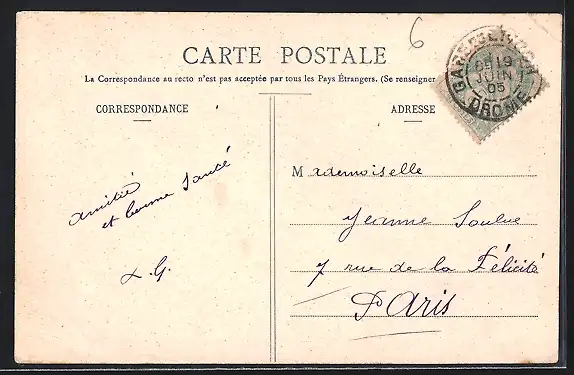 6
CARTE POSTALE
La Correspondance au recto n'est pas acceptée par tous les Pays Étrangers. (Se renseigner
CORRESPONDANCE
ADRESSE
GARE DE
19
JUIN
05
DROME
Mademoiselle
Jeanne
7 rue de la Félicité
Paris
amitié
et bonne Santé
L.G.